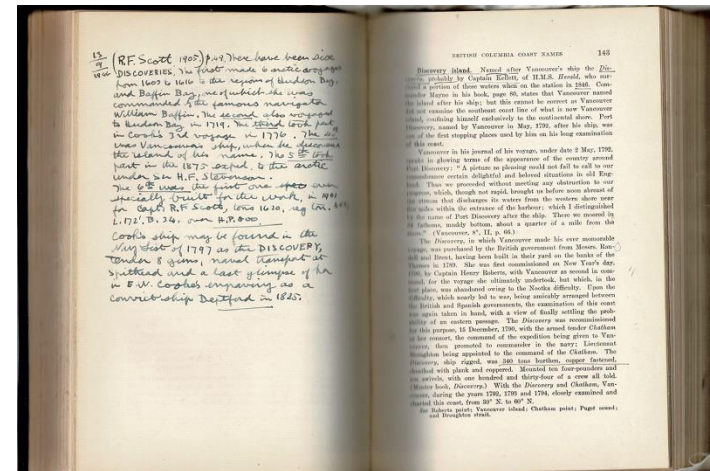 13/9/1966 (R.F. Scott 1905) p.49. There have been six
DISCOVERIES. The first made 6 arctic voyages
from 1602 to 1616 to the regions of Hudson Bay,
and Baffin Bay, one of which she was
commanded by the famous navigator
William Baffin. The second also voyaged
to Hudson Bay in 1719. The third took part
in Cook's 3rd voyage in 1776. The 4th
was Vancouver's ship, when he discovered
the island of his name. The 5th took
part in the 1875 exped. to the arctic
under Sir H.F. Stevenson.
The 6th was the first one ever
specially built for the work, in 1901
for Capt. R.F. Scott, tons 1620, reg. ton.
L. 172', B. 34. over H.P. 500
Cook's ship may be found in the
Navy List of 1797 as the DISCOVERY,
tender 8 guns, naval transport at
Spithead and a last glimpse of her
in E.W. Cooke's engraving as a
convict ship Deptford in 1825.
BRITISH COLUMBIA COAST NAMES 143
Discovery island. Named after Vancouver's ship the Dis-
covery, probably by Captain Kellett, of H.M.S. Herald, who sur-
veyed a portion of these waters when on the station in 1846. Com-
mander Mayne in his book, page 80, states that Vancouver named
the island after his ship; but this cannot be correct as Vancouver
did not examine the southeast coast line of what is now Vancouver
island, confining himself exclusively to the continental shore. Port
Discovery, named by Vancouver in May, 1792, after his ship, was
one of the first stopping places used by him on his long examination
of this coast.
Vancouver in his journal of his voyage, under date 2 May, 1792,
speaks in glowing terms of the appearance of the country around
Port Discovery: "A picture so pleasing could not fail to call to our
remembrance certain delightful and beloved situations in old Eng-
land. Thus we proceeded without meeting any obstruction to our
progress, which, though not rapid, brought us before noon abreast of
the stream that discharges its waters from the western shore near
five miles within the entrance of the harbour; which I distinguished
by the name of Port Discovery after the ship. There we moored in
34 fathoms, muddy bottom, about a quarter of a mile from the
shore." (Vancouver, 8°, II, p. 66.)
The Discovery, in which Vancouver made his ever memorable
voyage, was purchased by the British government from Messrs. Ran-
dell and Brent, having been built in their yard on the banks of the
Thames in 1789. She was first commissioned on New Year's day,
1790, by Captain Henry Roberts, with Vancouver as second in com-
mand, for the voyage she ultimately undertook, but which, in the
first place, was abandoned owing to the Nootka difficulty. Upon the
difficulty, which nearly led to war, being amicably arranged between
the British and Spanish governments, the examination of this coast
was again taken in hand, with a view of finally settling the prob-
ability of an eastern passage. The Discovery was recommissioned
for this purpose, 15 December, 1790, with the armed tender Chatham
as her consort, the command of the expedition being given to Van-
couver, then promoted to commander in the navy; Lieutenant
Broughton being appointed to the command of the Chatham. The
Discovery, ship rigged, was 340 tons burthen, copper fastened,
sheathed with plank and coppered. Mounted ten four-pounders and
ten swivels, with one hundred and thirty-four of a crew all told.
(Muster book, Discovery.) With the Discovery and Chatham, Van-
couver, during the years 1792, 1793 and 1794, closely examined and
charted this coast, from 30° N. to 60° N.
See Roberts point; Vancouver island; Chatham point; Puget sound;
and Broughton strait.